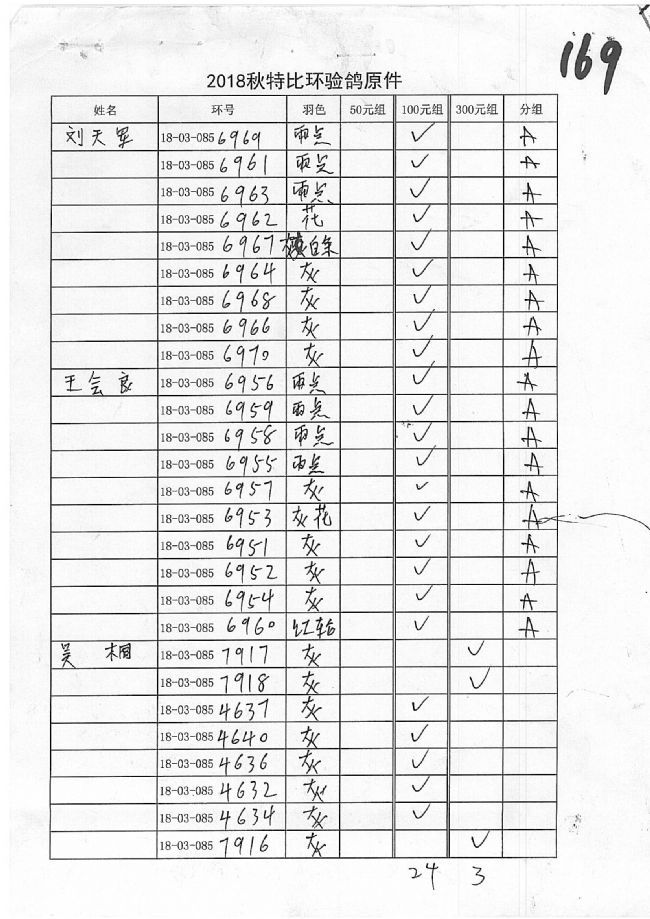 169
2018秋特比环验鸽原件
姓名 环号 羽色 50元组 100元组 300元组 分组
刘天军 18-03-085 6969 雨点 ✓ A
18-03-085 6961 雨点 ✓ A
18-03-085 6963 雨点 ✓ A
18-03-085 6962 花 ✓ A
18-03-085 6967 白条 ✓ A
18-03-085 6964 灰 ✓ A
18-03-085 6968 灰 ✓ A
18-03-085 6966 灰 ✓ A
18-03-085 6970 灰 ✓ A
王会良 18-03-085 6956 雨点 ✓ A
18-03-085 6959 雨点 ✓ A
18-03-085 6958 雨点 ✓ A
18-03-085 6955 雨点 ✓ A
18-03-085 6957 灰 ✓ A
18-03-085 6953 灰花 ✓ A
18-03-085 6951 灰 ✓ A
18-03-085 6952 灰 ✓ A
18-03-085 6954 灰 ✓ A
18-03-085 6960 红轮 ✓ A
吴桐 18-03-085 7917 灰 ✓
18-03-085 7918 灰 ✓
18-03-085 4637 灰 ✓
18-03-085 4640 灰 ✓
18-03-085 4636 灰 ✓
18-03-085 4632 灰 ✓
18-03-085 4634 灰 ✓
18-03-085 7916 灰 ✓
24 3